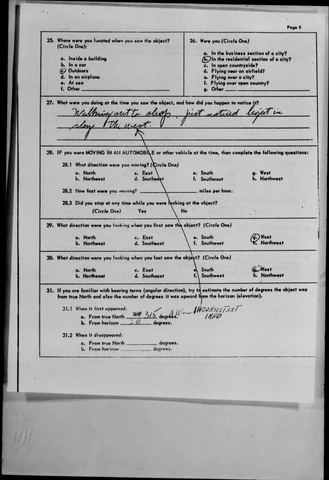 Page 5
25. Where were you located when you saw the object?
(Circle One):
a. Inside a building
b. In a car
c. Outdoors
d. In an airplane
e. At sea
f. Other
26. Were you (Circle One)
a. In the business section of a city?
b. In the residential section of a city?
c. In open countryside?
d. Flying near an airfield?
e. Flying over a city?
f. Flying over open country?
g. Other
27. What were you doing at the time you saw the object, and how did you happen to notice it?
Walking out to shop, just noticed light in
sky the west.
28. IF you were MOVING IN AN AUTOMOBILE or other vehicle at the time, then complete the following questions:
28.1 What direction were you moving? (Circle One)
a. North c. East e. South g. West
b. Northeast d. Southeast f. Southwest h. Northwest
28.2 How fast were you moving? miles per hour.
28.3 Did you stop at any time while you were looking at the object?
(Circle One) Yes No
29. What direction were you looking when you first saw the object? (Circle One)
a. North c. East e. South g. West
b. Northeast d. Southeast f. Southwest h. Northwest
30. What direction were you looking when you last saw the object? (Circle One)
a. North c. East e. South g. West
b. Northeast d. Southeast f. Southwest h. Northwest
31. If you are familiar with bearing terms (angular direction), try to estimate the number of degrees the object was
from true North and also the number of degrees it was upward from the horizon (elevation).
31.1 When it first appeared:
a. From true North 315 degrees. NW — INCONSISTENT
b. From horizon 0 degrees. INFO
31.2 When it disappeared:
a. From true North degrees.
b. From horizon degrees.